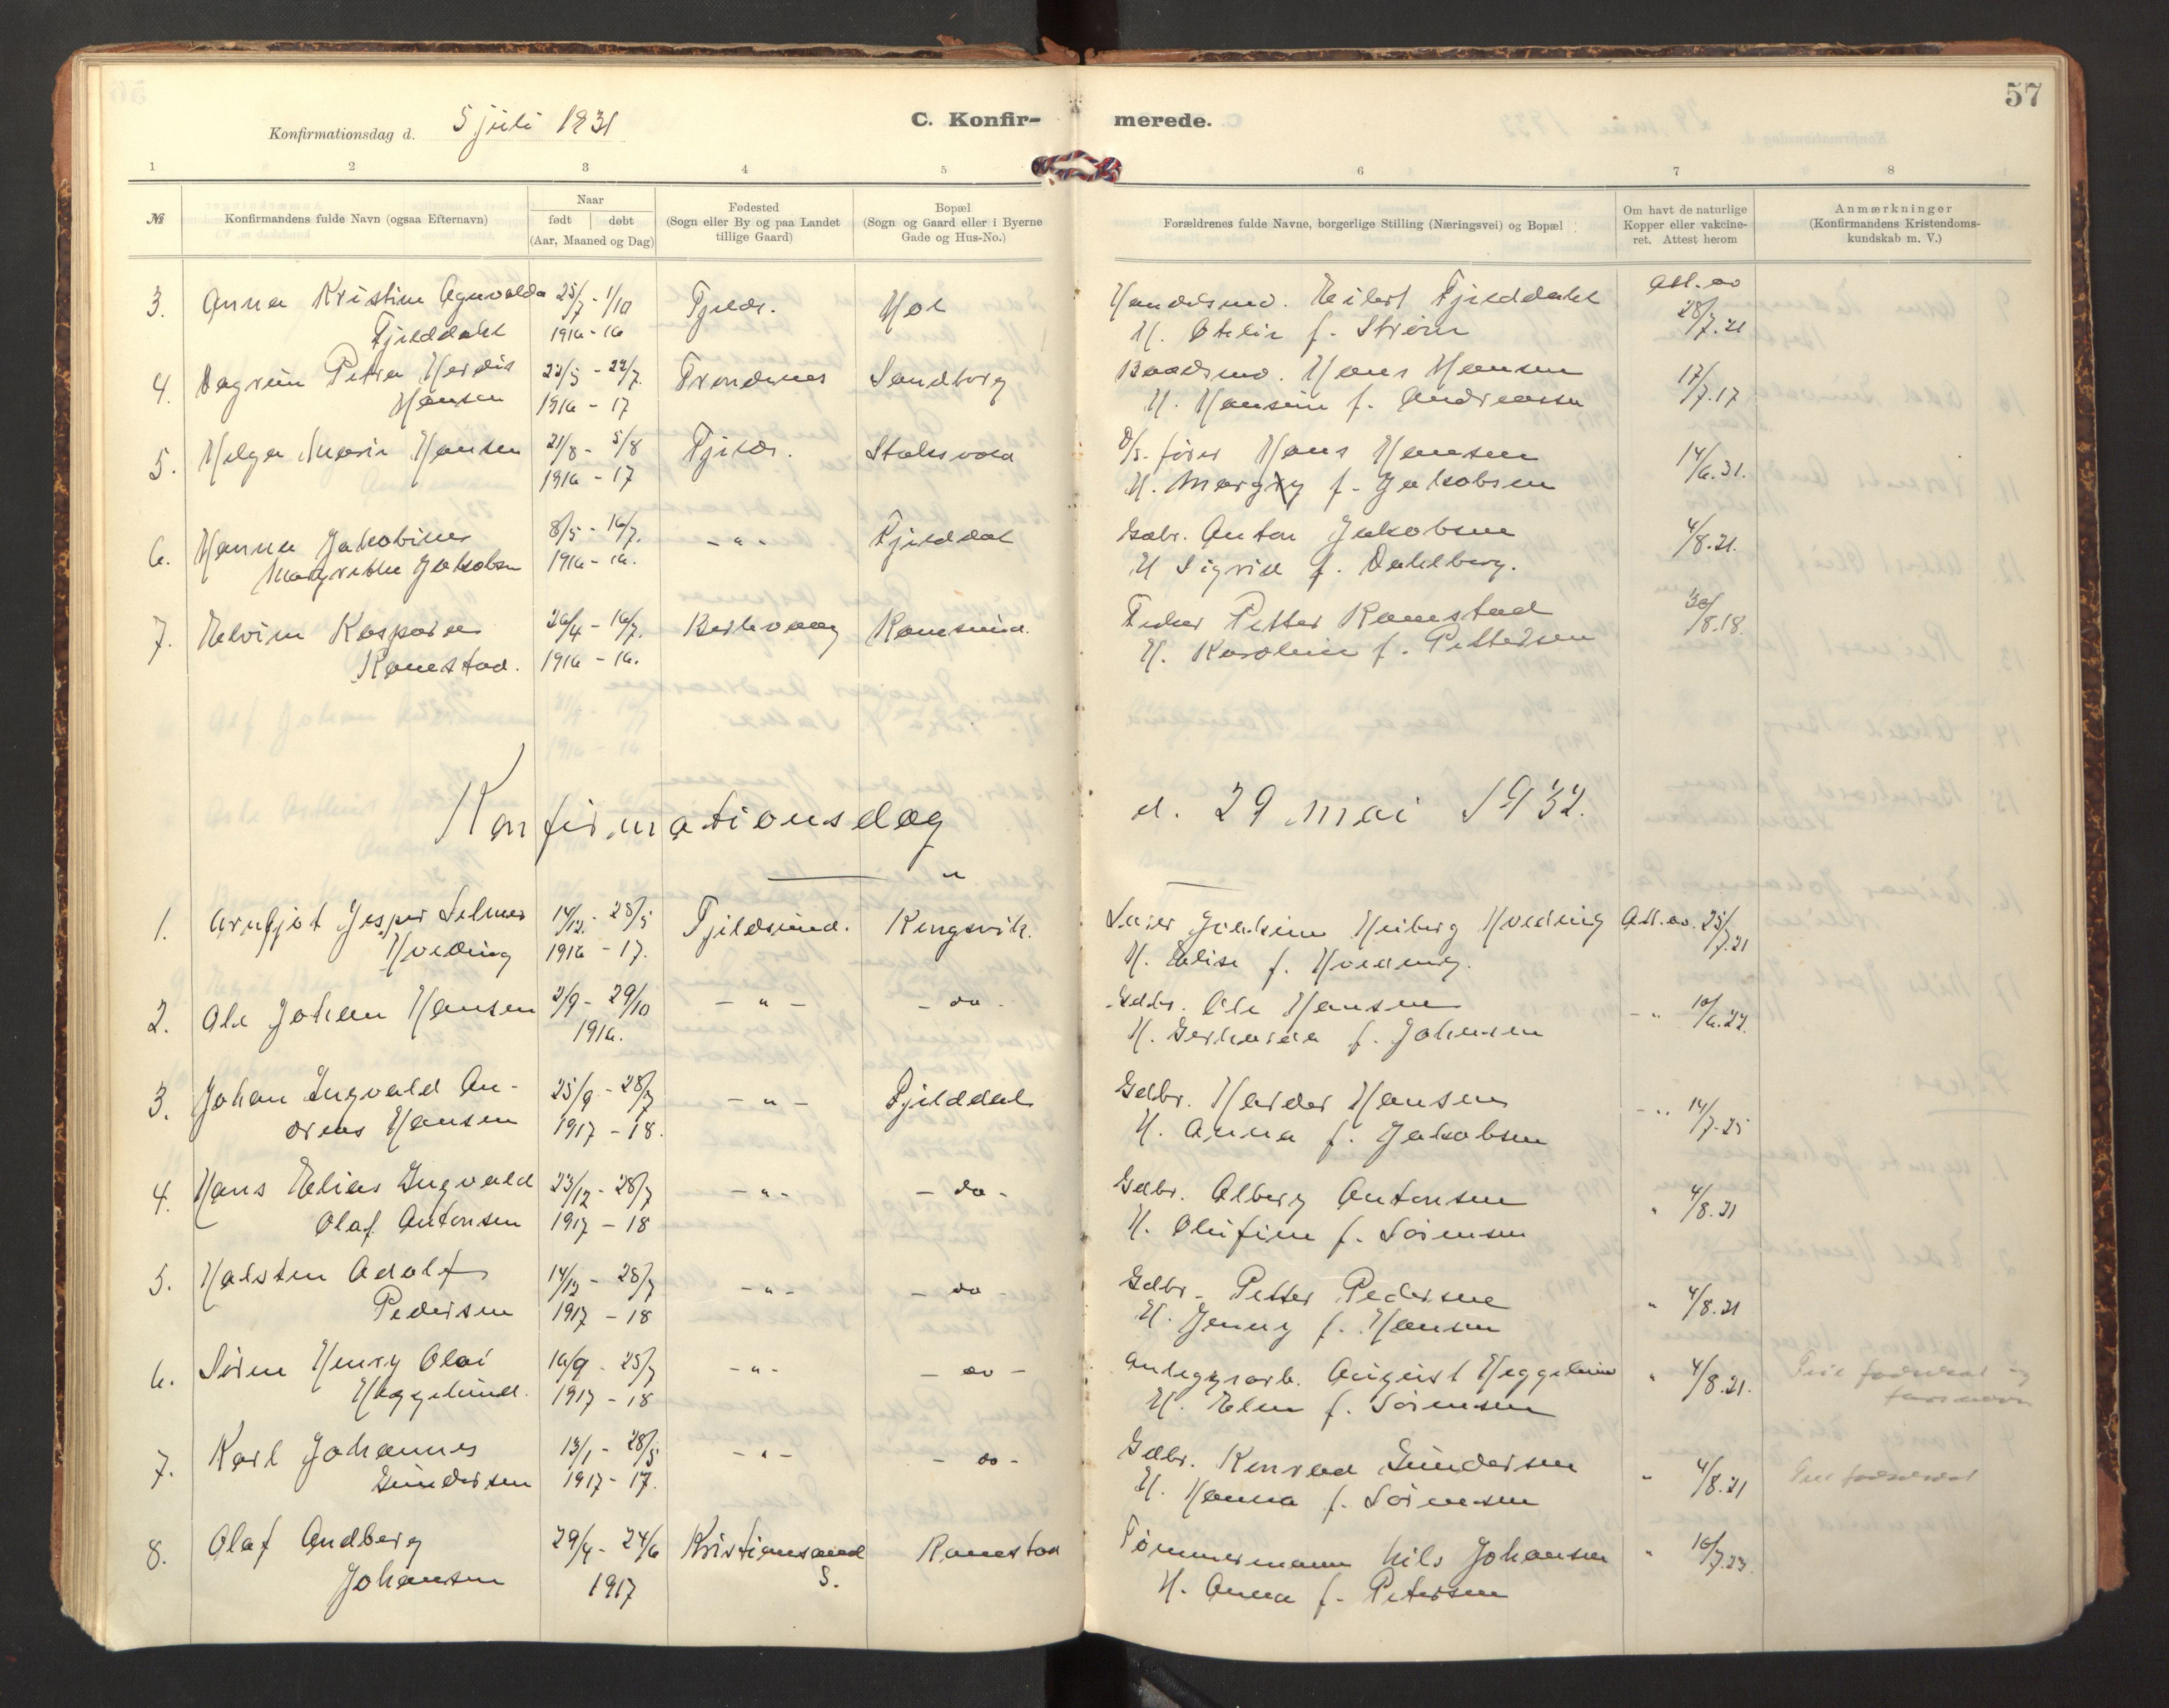 57
Konfirmationsdag d. 5 juli 1931
C. Konfir- merede.
1 2 3 4 5 6 7 8
№
Konfirmandens fulde Navn (ogsaa Efternavn)
Naar
født døbt
(Aar, Maaned og Dag)
Fødested
(Sogn eller By og paa Landet
tillige Gaard)
Bopæl
(Sogn og Gaard eller i Byerne
Gade og Hus-No.)
Forældrenes fulde Navne, borgerlige Stilling (Næringsvei) og Bopæl
Om havt de naturlige
Kopper eller vakcine-
ret. Attest herom
Anmærkninger
(Konfirmandens Kristendoms-
kundskab m. V.)
3. Anna Kristine 25/7 - 1/10 Fjelds. Hol Handelsmd. Eilert Fjelddahl Att. av
Fjelddahl 1916 - 16 H. Otelie f. Strøm 28/7.21
4. Dagrun Petra Herdis 23/5 - 22/7. Trondenes Sandtorg Baadsmd. Hans Hansen 17/7.17
Hansen 1916 - 17 H. Hansine f. Andreassen
5. Helga Marie Hansen 21/8 - 5/8 Fjelds. D/s. fører Hans Hansen 14/6.31.
1916 - 17 H. f. Jakobsen
6. Hanna Jakobine 8/5 - 16/7. - " - Fjelddal Gdbr. Anton Jakobsen 4/8.21.
Margrethe Jakobsen 1916 - 16. H. Sigrid f. Dahlberg.
7. Elvine Kaspara 26/4 - 16/7. Berlevaag Ramsund. Fisker Petter Ramstad 30/8.18.
Ramstad. 1916 - 16. H. Karoline f. Pettersen
Konfirmationsdag d. 29 mai 1932.
1. Arnljot Jesper Selmer 14/12. - 28/5 Fjeldsund. Kongsvik. Lærer Heiberg Hveding Att. av. 25/7.21
Hveding 1916 - 17. H. Elise f. Hveding.
2. Ole Johan Hansen 2/9 - 29/10 - " - - do - Gdbr. Ole Hansen - " 10/6.22.
1916. H. Gerharda f. Johnsen
3. Johan Ingvald An- 25/9 - 28/7 - " - Fjelddal Gdbr. Harder Hansen - " 14/7.25
dreas Hansen 1917 - 18. H. Anna f. Jakobsen
4. Hans Elias Ingvald 23/12 - 28/7 - " - - do - Gdbr. Alberg Antonsen " 4/8.21
Olaf Antonsen 1917 - 18 H. Olufine f. Sørensen
5. Halsten Adolf 14/12 - 28/7 - " - - do - Gdbr. Petter Pedersen " 4/8.21
Pedersen 1917 - 18 H. Jenny f. Hansen
6. Søren Henry Olai 16/9 - 25/7 - " - - do - Anleggsarb. August Heggelund " 4/8.21.
Heggelund. 1917 - 18 H. Elen f. Sørensen
7. Karl Johannes 13/1 - 28/5 - " - - do - Gdbr. Konrad Gundersen " 4/8.21
Gundersen 1917 - 17. H. Hanna f. Sørensen
8. Olaf Andberg 29/4 - 24/6 Kristiansand Ramstad Tømmermann Nils Johansen " 16/7.23.
Johansen 1917 S. H. Anna f. Petersen